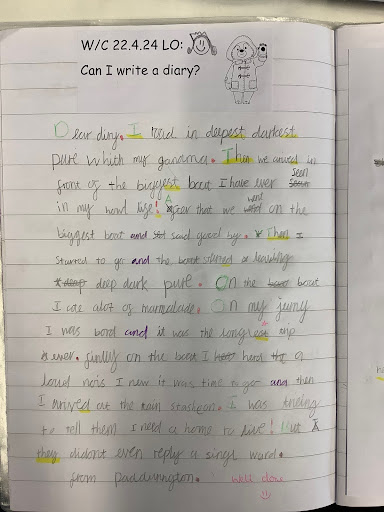 W/C 22.4.24 LO:
Can I write a diary?
Dear diry. I road in deepest darkest
pure whith my grandma. Then we arived in
front of the biggest boat I have ever seen
in my hond life! After that we went on the
biggest boat and said good by. Then I
started to go and the boat started a leaving
deep dark pure. On the boat
I ate alot of marmalade. On my jurny
I was bord and it was the longrest trip
ever. finlly on the boat I herd a
loud nois I new it was time to go and then
I arrived at the train stashean. I was trieing
to tell them I need a home to live! But
they didont even reply a singl word.
from paddington. well done